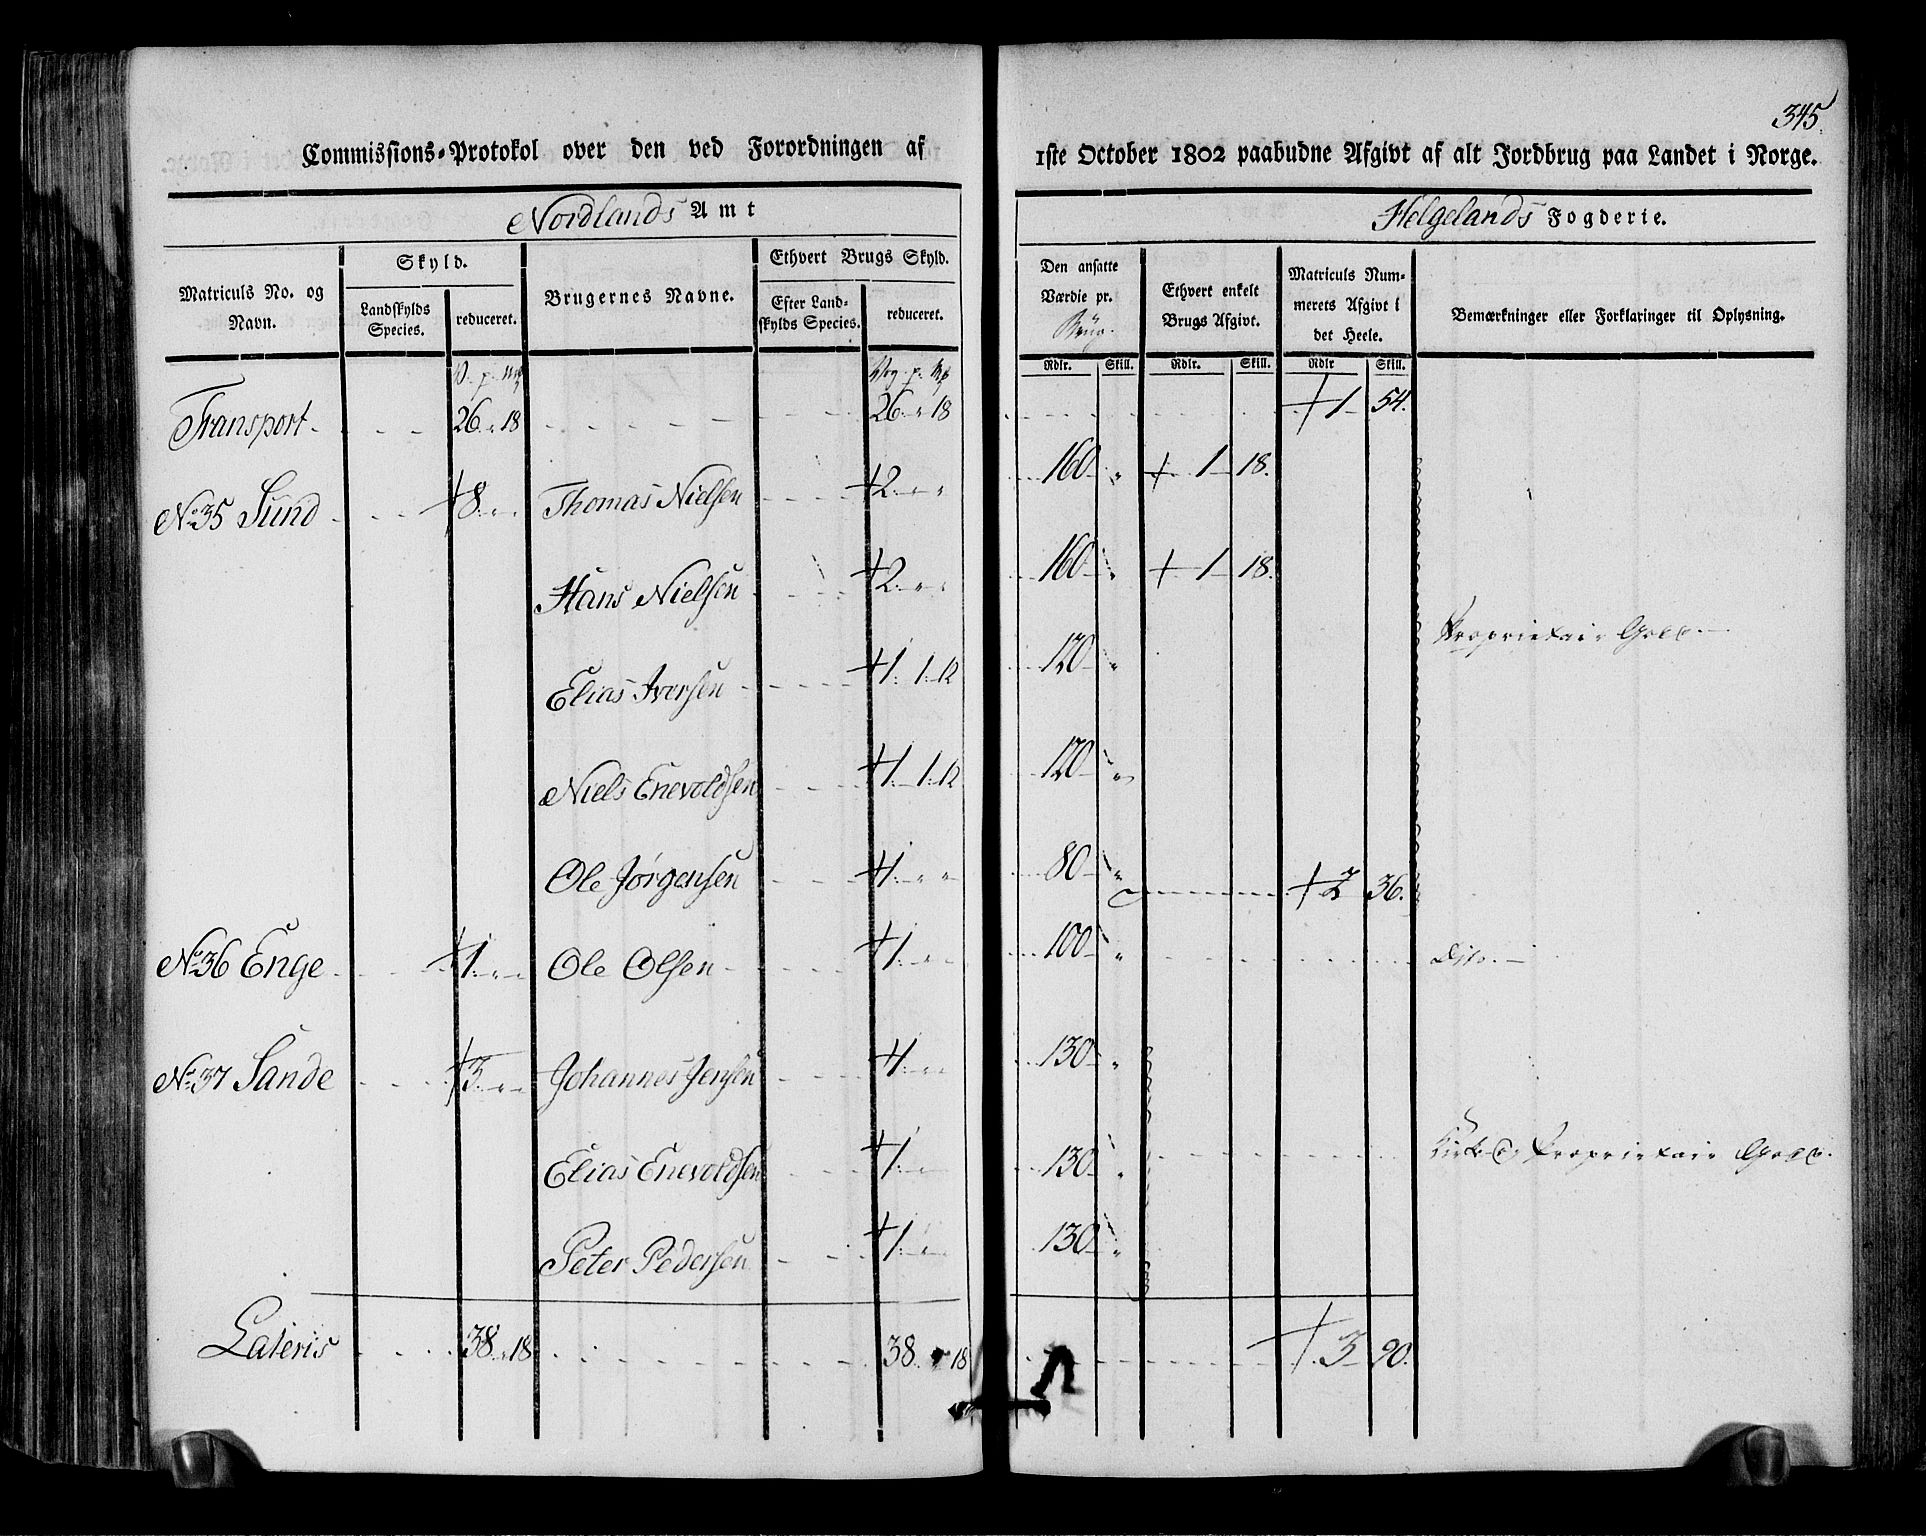 345.
Commissions-Protokol over den ved Forordningen af 1ste October 1802 paabudne Afgivt af alt Jordbrug paa Landet i Norge.
Nordlands Amt
Helgelands Fogderie.
Matriculs No. og Navn.
Skyld.
Landskylds Species.
reduceret.
Brugernes Navne.
Ethvert Brugs Skyld.
Efter Landskylds Species.
reduceret.
Den ansatte Værdie pr. Brug.
Ethvert enkelt Brugs Afgivt.
Matriculs Nummerets Afgivt i det Heele.
Bemærkninger eller Forklaringer til Oplysning.
Rdlr. Skill. Rdlr. Skill. Rdlr Skill.
Transport 26 " 18 26 " 18 + 1 54.
No 35 Sund + 8 " " Thomas Nielsen + 2 " " 160 " + 1 18.
Hans Nielsen + 2 " " 160 " + 1 18.
Proprietair Gods.
Elias Iversen + 1 1 12 120 "
Niels Enevoldsen + 1 1 12 120 "
Ole Jørgensen + 1 " " 80 " + 2 36.
No 36 Enge + 1 " " Ole Olsen + 1 " " 100 " Dito.
No 37 Sande + 3 " " Johannes Jensen + 1 " " 130 "
Elias Enevoldsen + 1 " 130 " Kirke og Proprietair Gods.
Peter Pedersen + 1 " 130 "
Lateris 38 " 18 38 " 18 + 3 90.